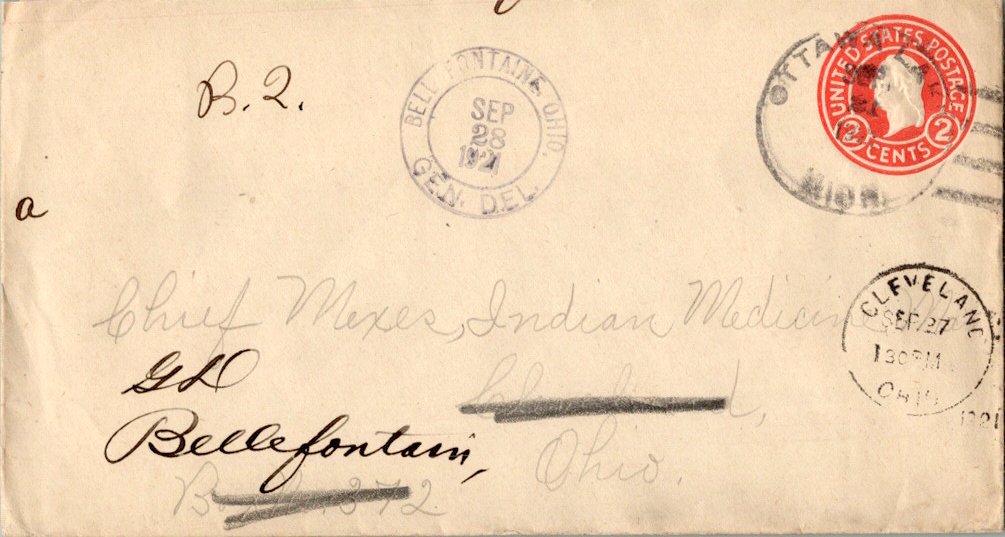 B. 2.
BELLEFONTAINE, OHIO.
SEP
28
1921
GEN. DEL.
OTTAWA LA
MICH
UNITED STATES POSTAGE
2 CENTS 2
a
CLEVELAND
SEP 27
130 PM
OHIO
1921
Chief Mexes, Indian Medicine
GD
Cleveland,
Bellefontain,
Ohio.
372